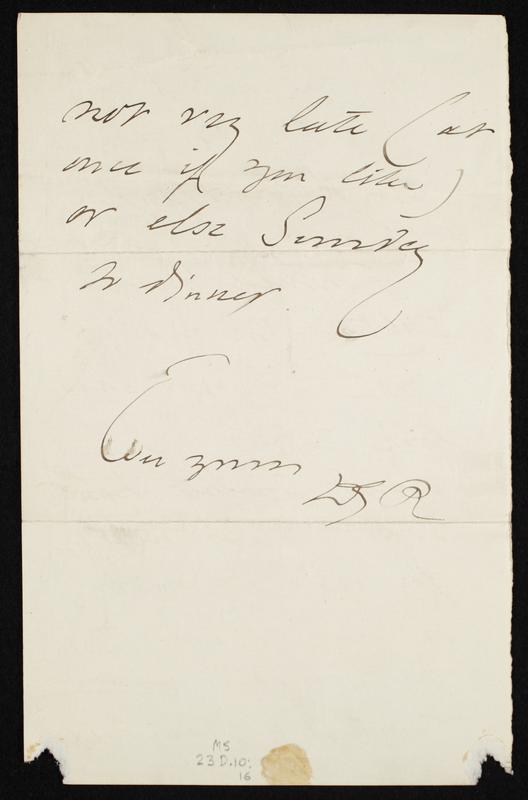 not very late (at
once if you like)
or else Sunday
to dinner.
Ever yours
DGR
MS
23 D.10:
16